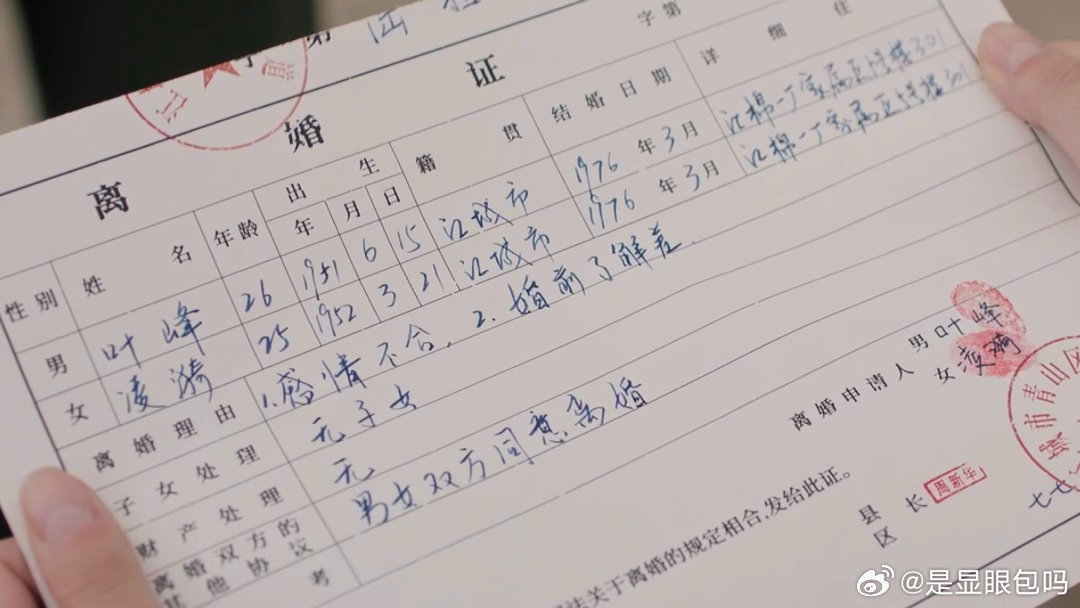 字第
离婚证
性别 姓名 年龄 出生年月日 籍贯 结婚日期 详细住
男 叶峰 26 1951 6 15 江城市 1976年3月 江棉一厂家属区红楼301
女 凌漪 25 1952 3 21 江城市 1976年3月 江棉一厂家属区红楼301
离婚理由 1.感情不合. 2.婚前了解差.
子女处理 无子女
财产处理 无
离婚双方的其他协议 男女双方同意离婚
考
离婚申请人 男 叶峰
女 凌漪
法关于离婚的规定相合,发给此证。
县
区
长 周新华
城市青山区
七七
@是显眼包吗